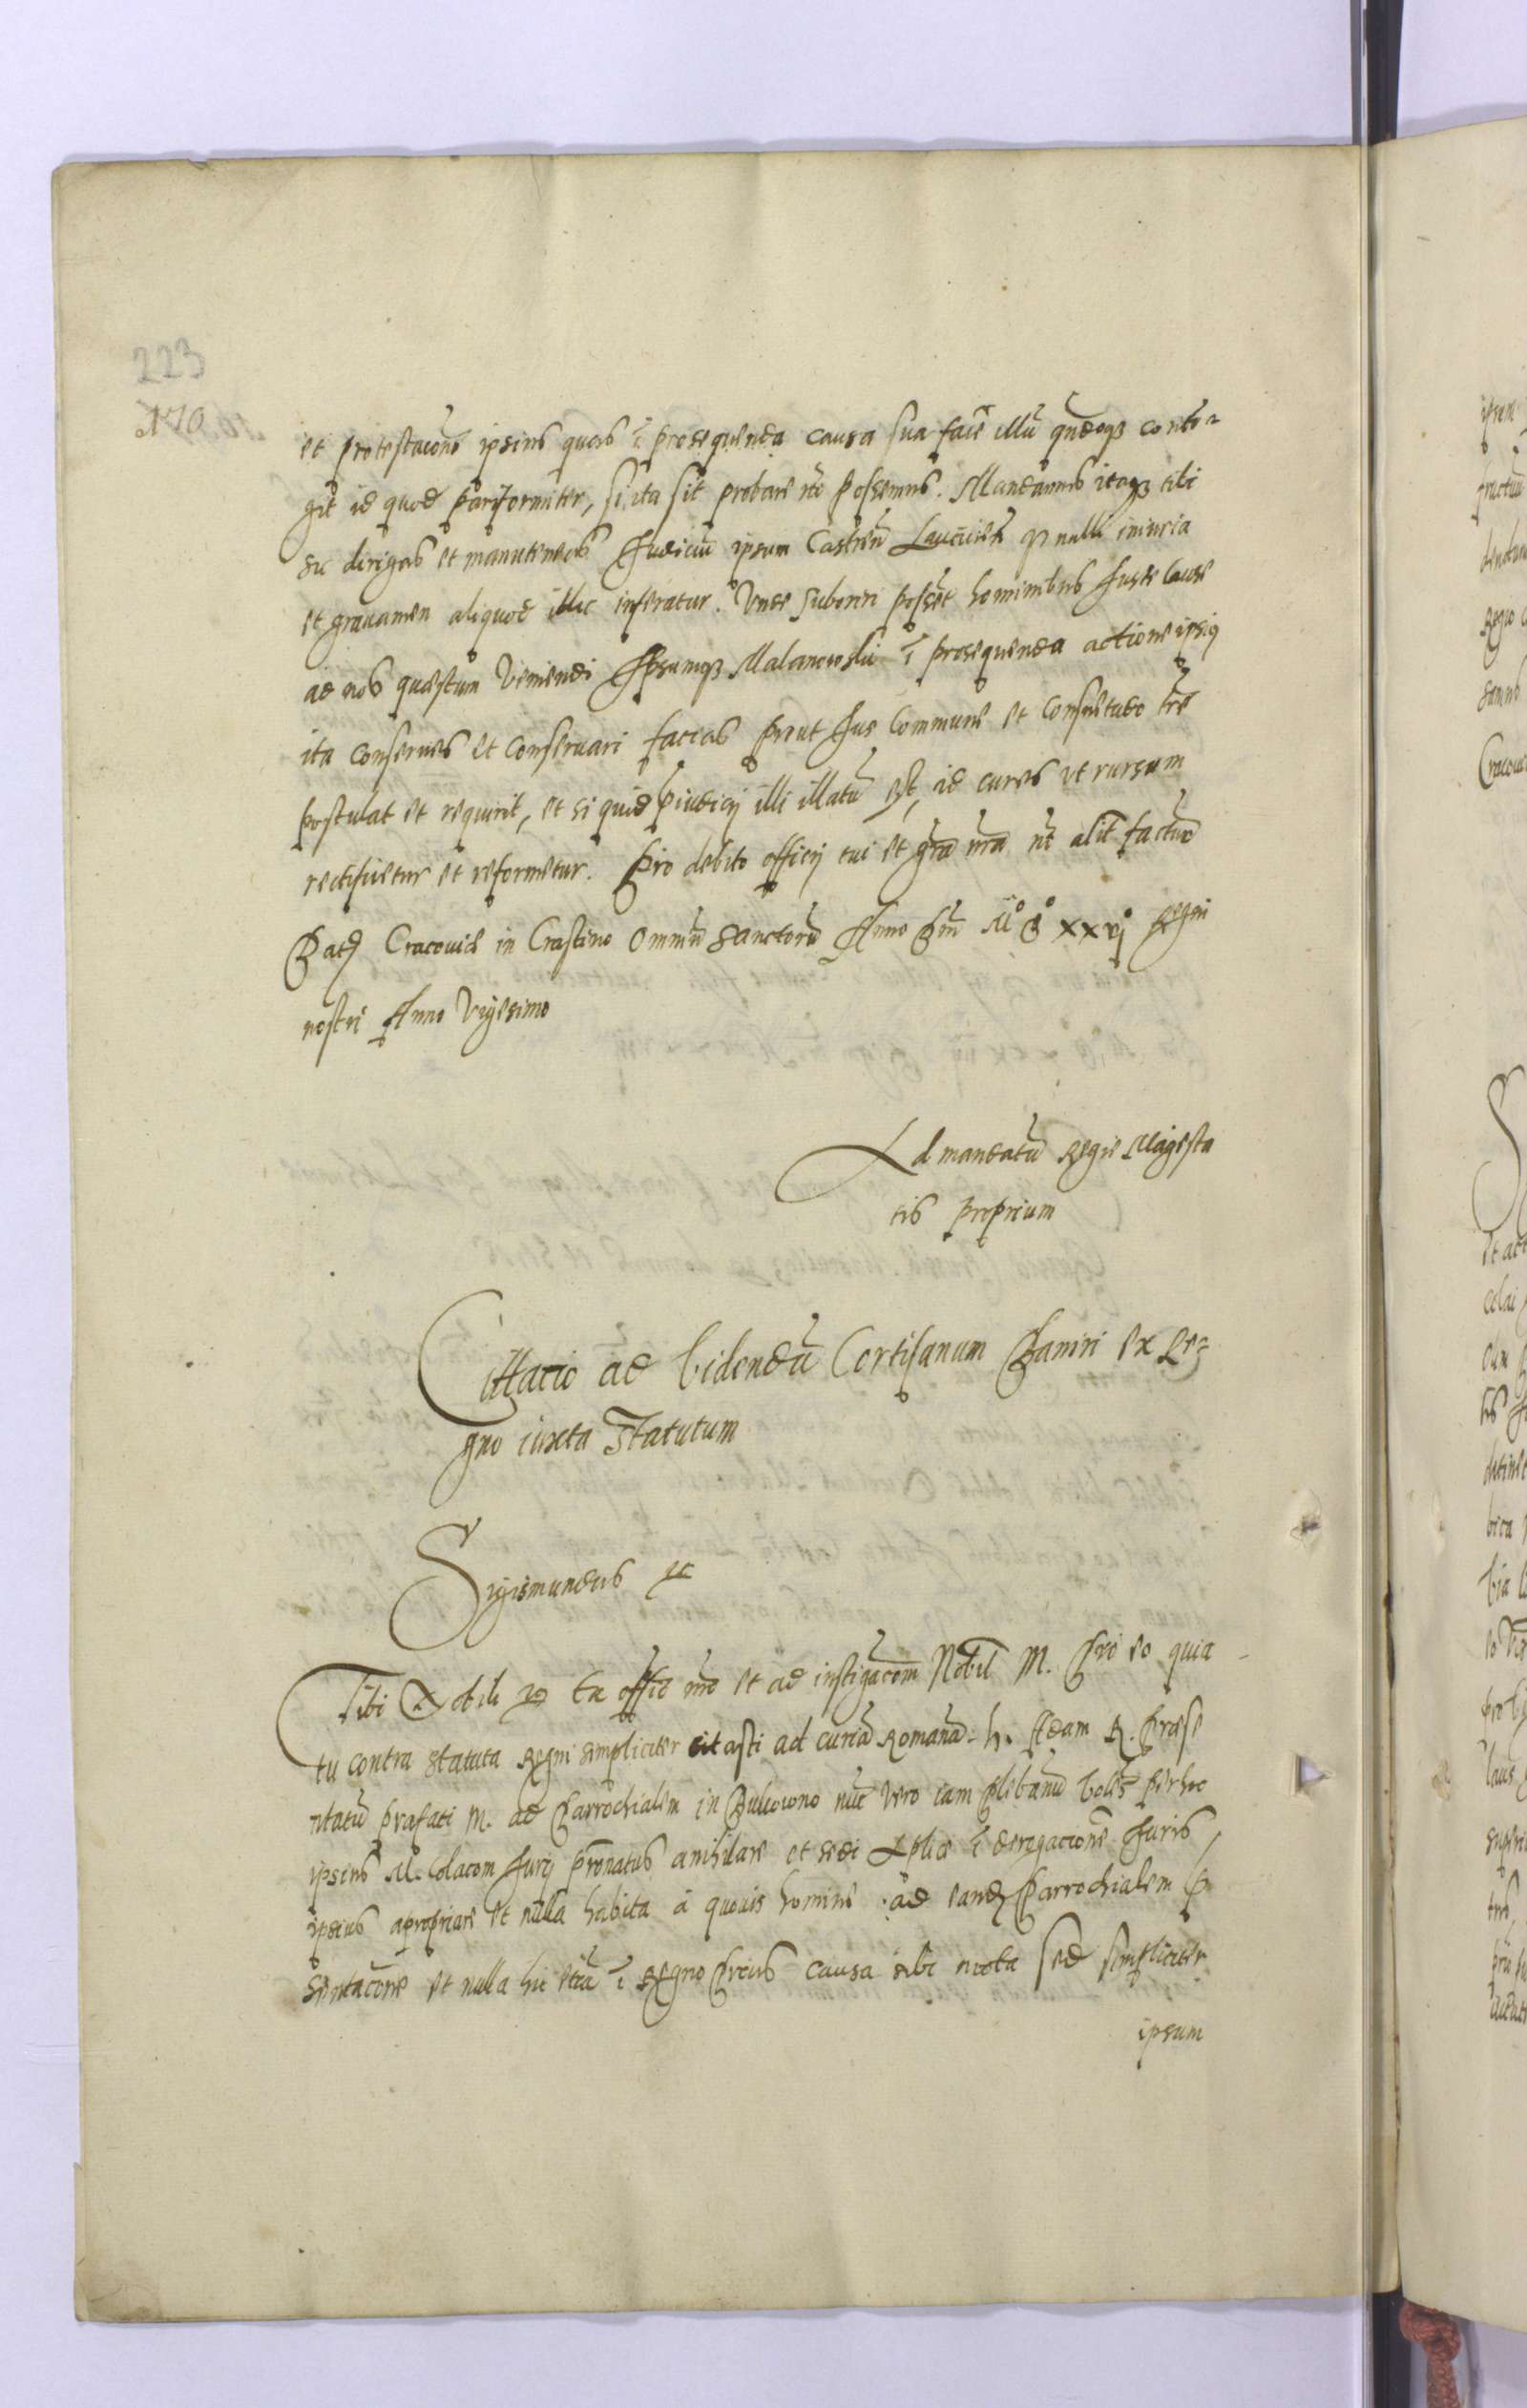 223
170
et protestacione ipsius quas ī prosequenda causa sua facē illū qn̄doq3 conti-
git id quod pariformiter, si ita sit probare nō possemus. Mandamus itaq3 tibi
sic dirigas et manuteneas Judiciū ipsum Castren̄ Lancicien̄ q nulli iniuria
et grauamen aliquod illic inferatur. Unde suboriri posset hominibus Juste cause
ad nos quæstum veniendi Ipsumq3 Malanowski ī prosequenda actione ipsiq
ita conserues et conseruari facias prout Jus Commune et consuetudo trē
postulat et requirit, et si quid p̄iudicij illi illatū est, id cures ut rursum
rectificetur et reformetur. Pro debito officij tui et gr̄a nr̄a nō alit̄ factur̄
Dat Cracouie in Crastino Omniū Sanctorū Anno Dn̄i Mº Dº xxvjº Regni
nostri Anno Vigesimo
Ad mandatū Regie Magesta
tis proprium
Cittatio ad videndū Cortisanum Baniri ex Re-
gno iuxta Statutum
Sigismundus etc
Tibi Nobili N Ex offic̄ nr̄o et ad instigacōm Nobil M. Pro eo quia
tu contra statuta Regni simpliciter citasti ad curiā Romanā h. Adam R. Præse
ntatū præfati M. ad Parrochialem in nūc vero iam Plebanū volēs per hoc
ipsius M. Colacōm Jurij pr̄onatus anihilare et sedi Aplice ī derogacione Juris
ipsius apropriare et nulla habita á quouis homine ad eand Parrochialem p̄
sentacōne et nulla hic etiā ī Regno prius causa sibi mota sed simpliciter
ipsum